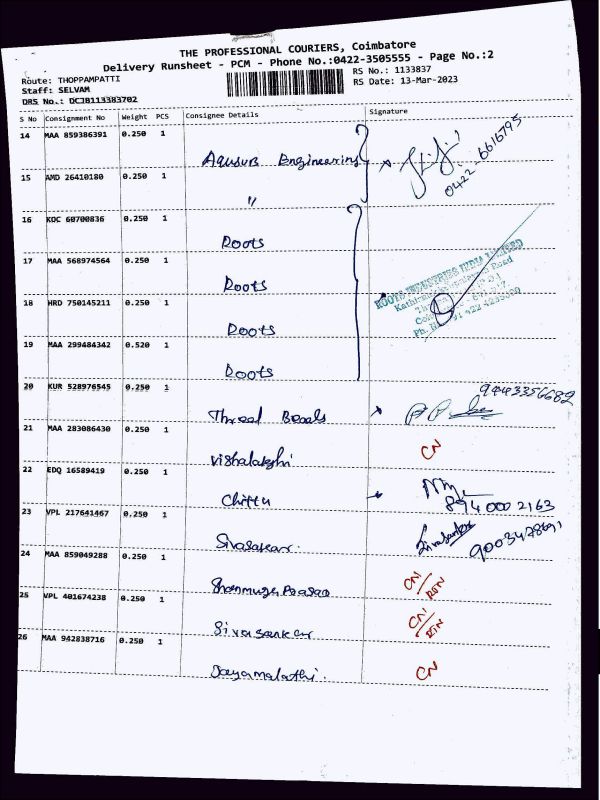 THE PROFESSIONAL COURIERS, Coimbatore
Delivery Runsheet - PCM - Phone No.:0422-3505555 - Page No.:2
Route: THOPPAMPATTI
RS No.: 1133837
Staff: SELVAM
RS Date: 13-Mar-2023
DRS No.: DCJB113383702
S No Consignment No Weight PCS Consignee Details Signature
14 MAA 859386391 0.250 1
Engineering
0422-6616795
15 AMD 26410180 0.250 1
"
16 KOC 60700836 0.250 1
Roots
17 MAA 568974564 0.250 1
Roots
ROOTS INDUSTRIES INDIA LIMITED
18 HRD 750145211 0.250 1
Roots
19 MAA 299484342 0.520 1
Roots
20 KUR 528976545 0.250 1
9443356682
Thread Beads
21 MAA 283086430 0.250 1
CN
Vishalakshi
22 EDQ 16589419 0.250 1
Chittu
894 000 2163
23 VPL 217641467 0.250 1
Sivasankar.
9003478691
24 MAA 859049288 0.250 1
CN/RTN
25 VPL 401674238 0.250 1
Sivasankar
CN/RTN
26 MAA 942838716 0.250 1
Jayamalathi.
CN